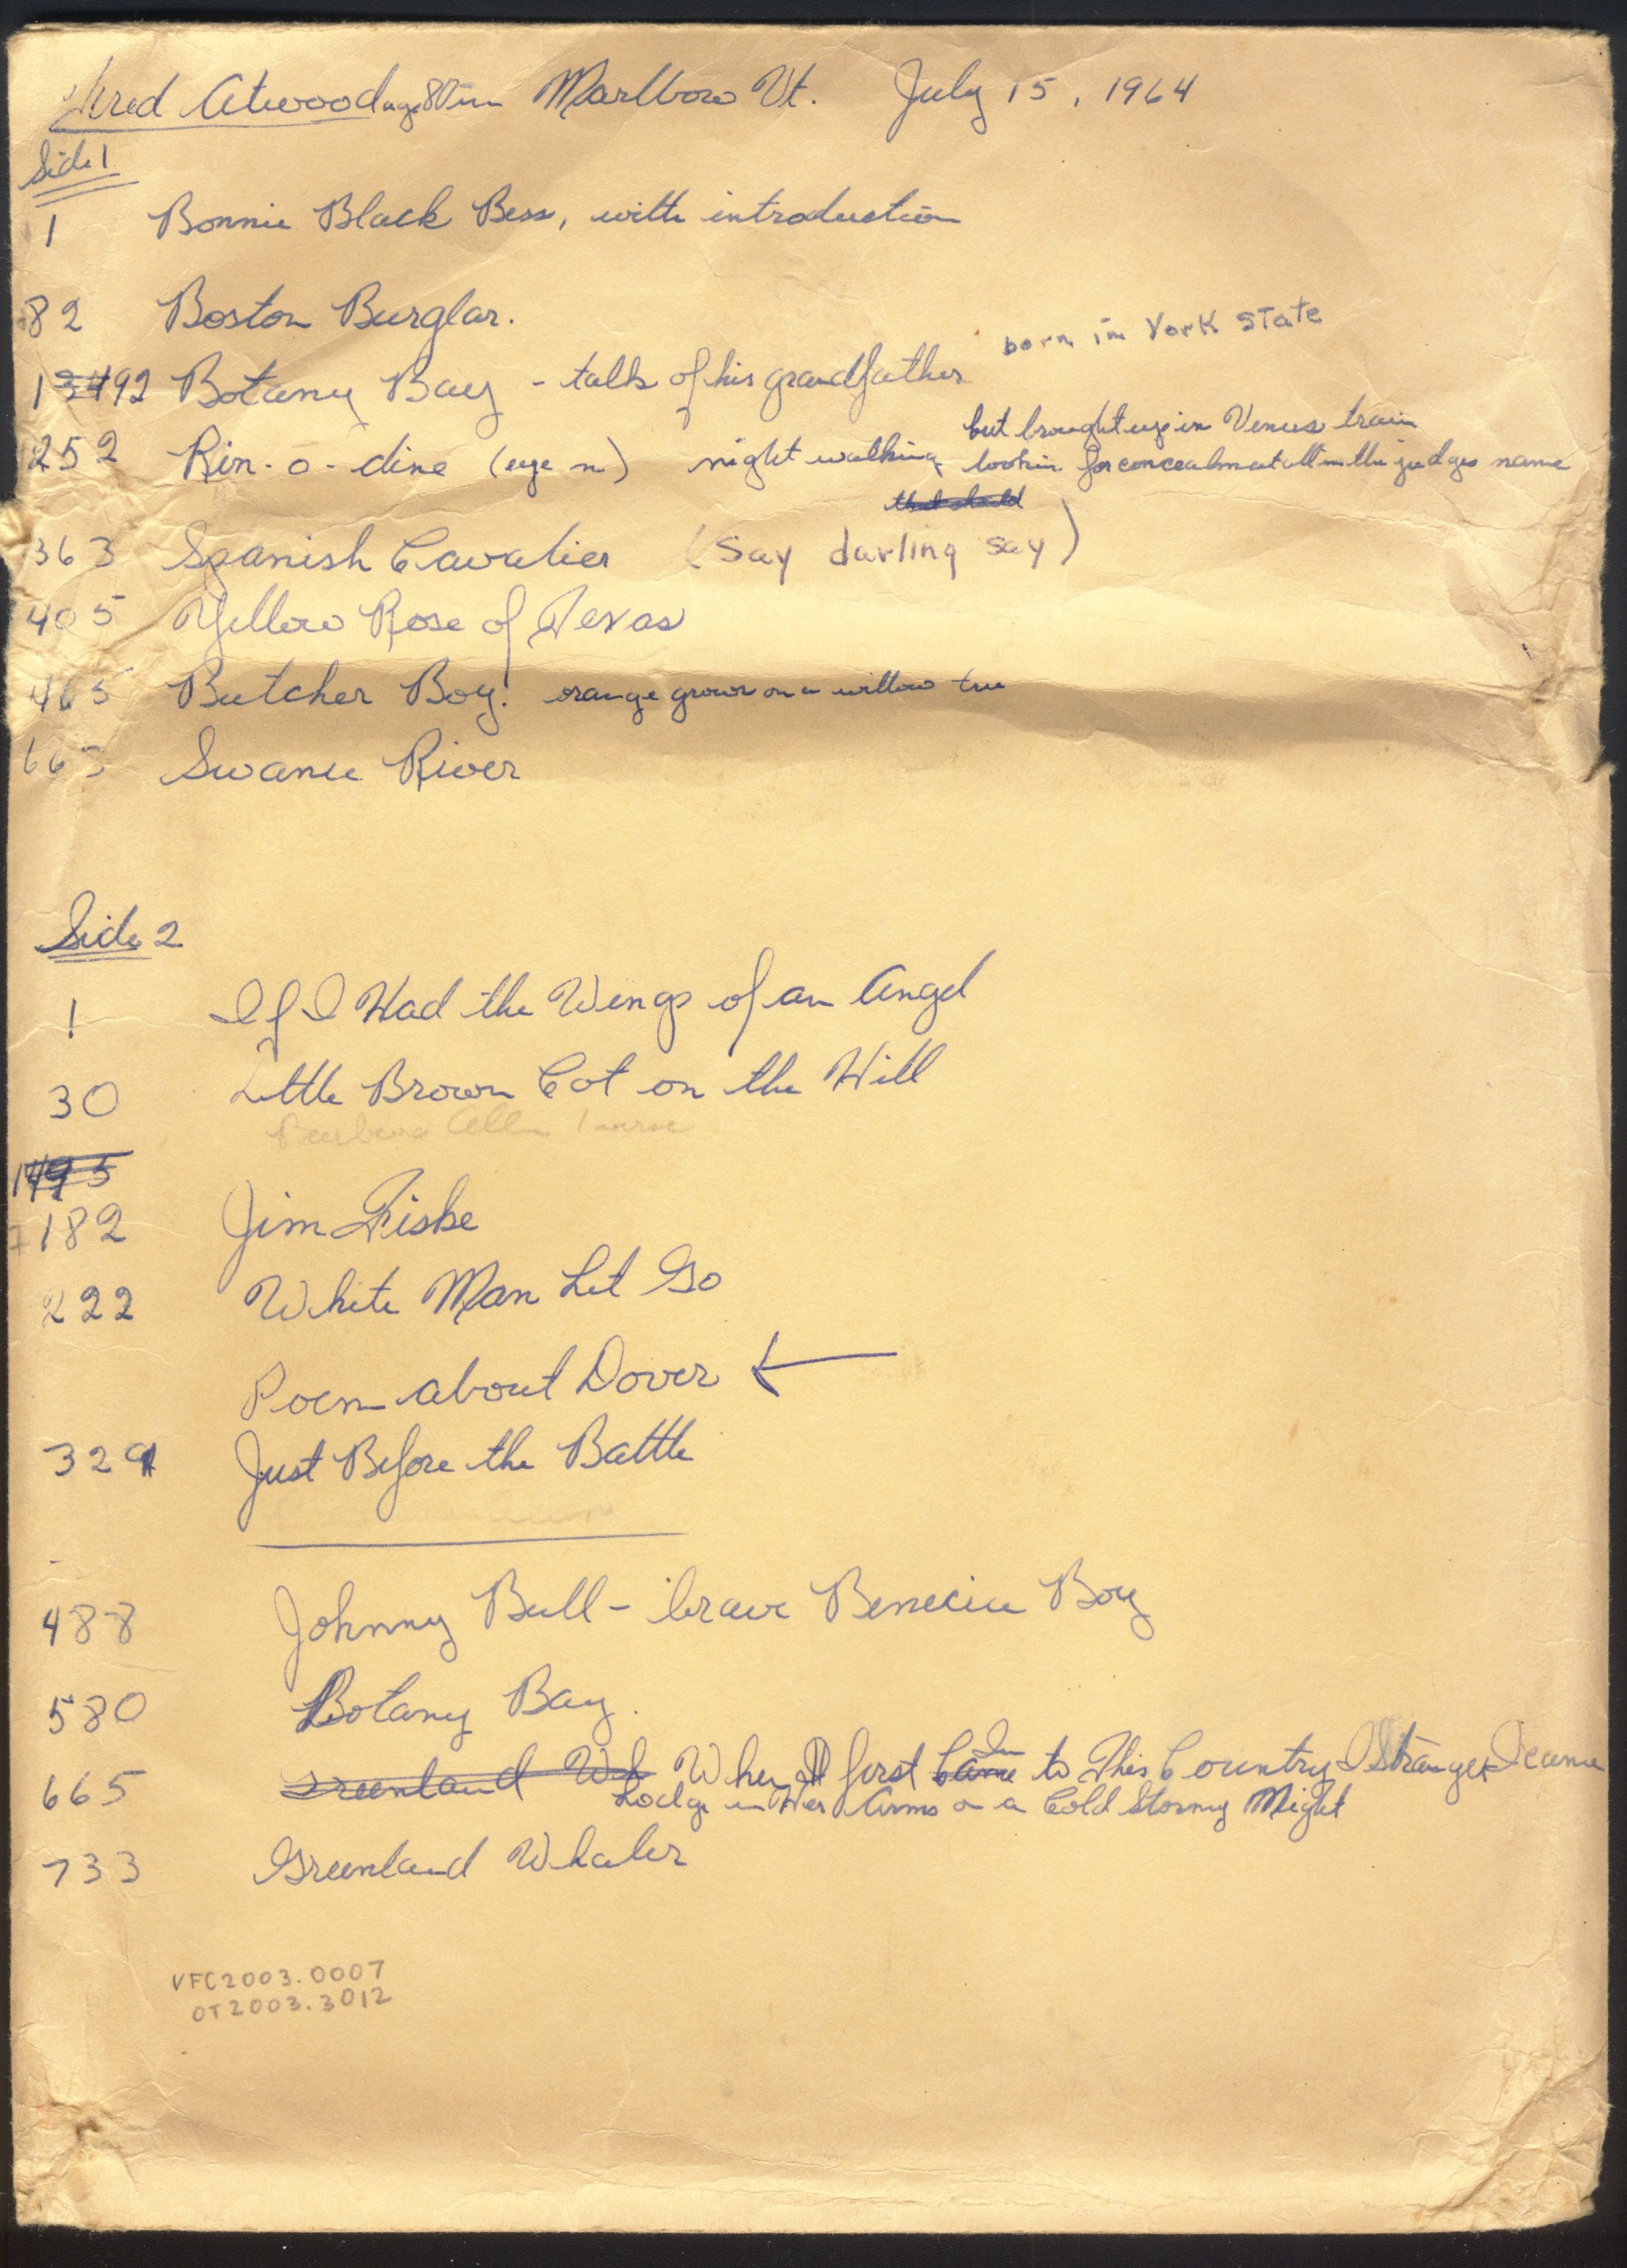 Fred Atwood age 80 in Marlboro Vt. July 15, 1964
Side 1
1 Bonnie Black Bess, with introduction
82 Boston Burglar.
born in York State
192 Botany Bay - talk of his grandfather
but brought up in Venus train
252 Rin-o-dine (eye n) night walking lookin for concealment all in the judges name
363 Spanish Cavalier (Say darling say)
405 Yellow Rose of Texas
465 Butcher Boy. orange grows on a willow tree
665 Swanee River
Side 2
1 If I Had the Wings of an Angel
30 Little Brown Cot on the Hill
Barbara Allen 1 verse
1495
182 Jim Fiske
222 White Man Let Go
Poem about Dover ←
329 Just Before the Battle
488 Johnny Bull - brave Benecia Boy
580 Botany Bay.
665 Greenland Wh When I first Came In to This Country I Stranger I came
Lodge in Her Arms on a Cold Stormy Night
733 Greenland Whaler
VFC2003.0007
OT2003.3012